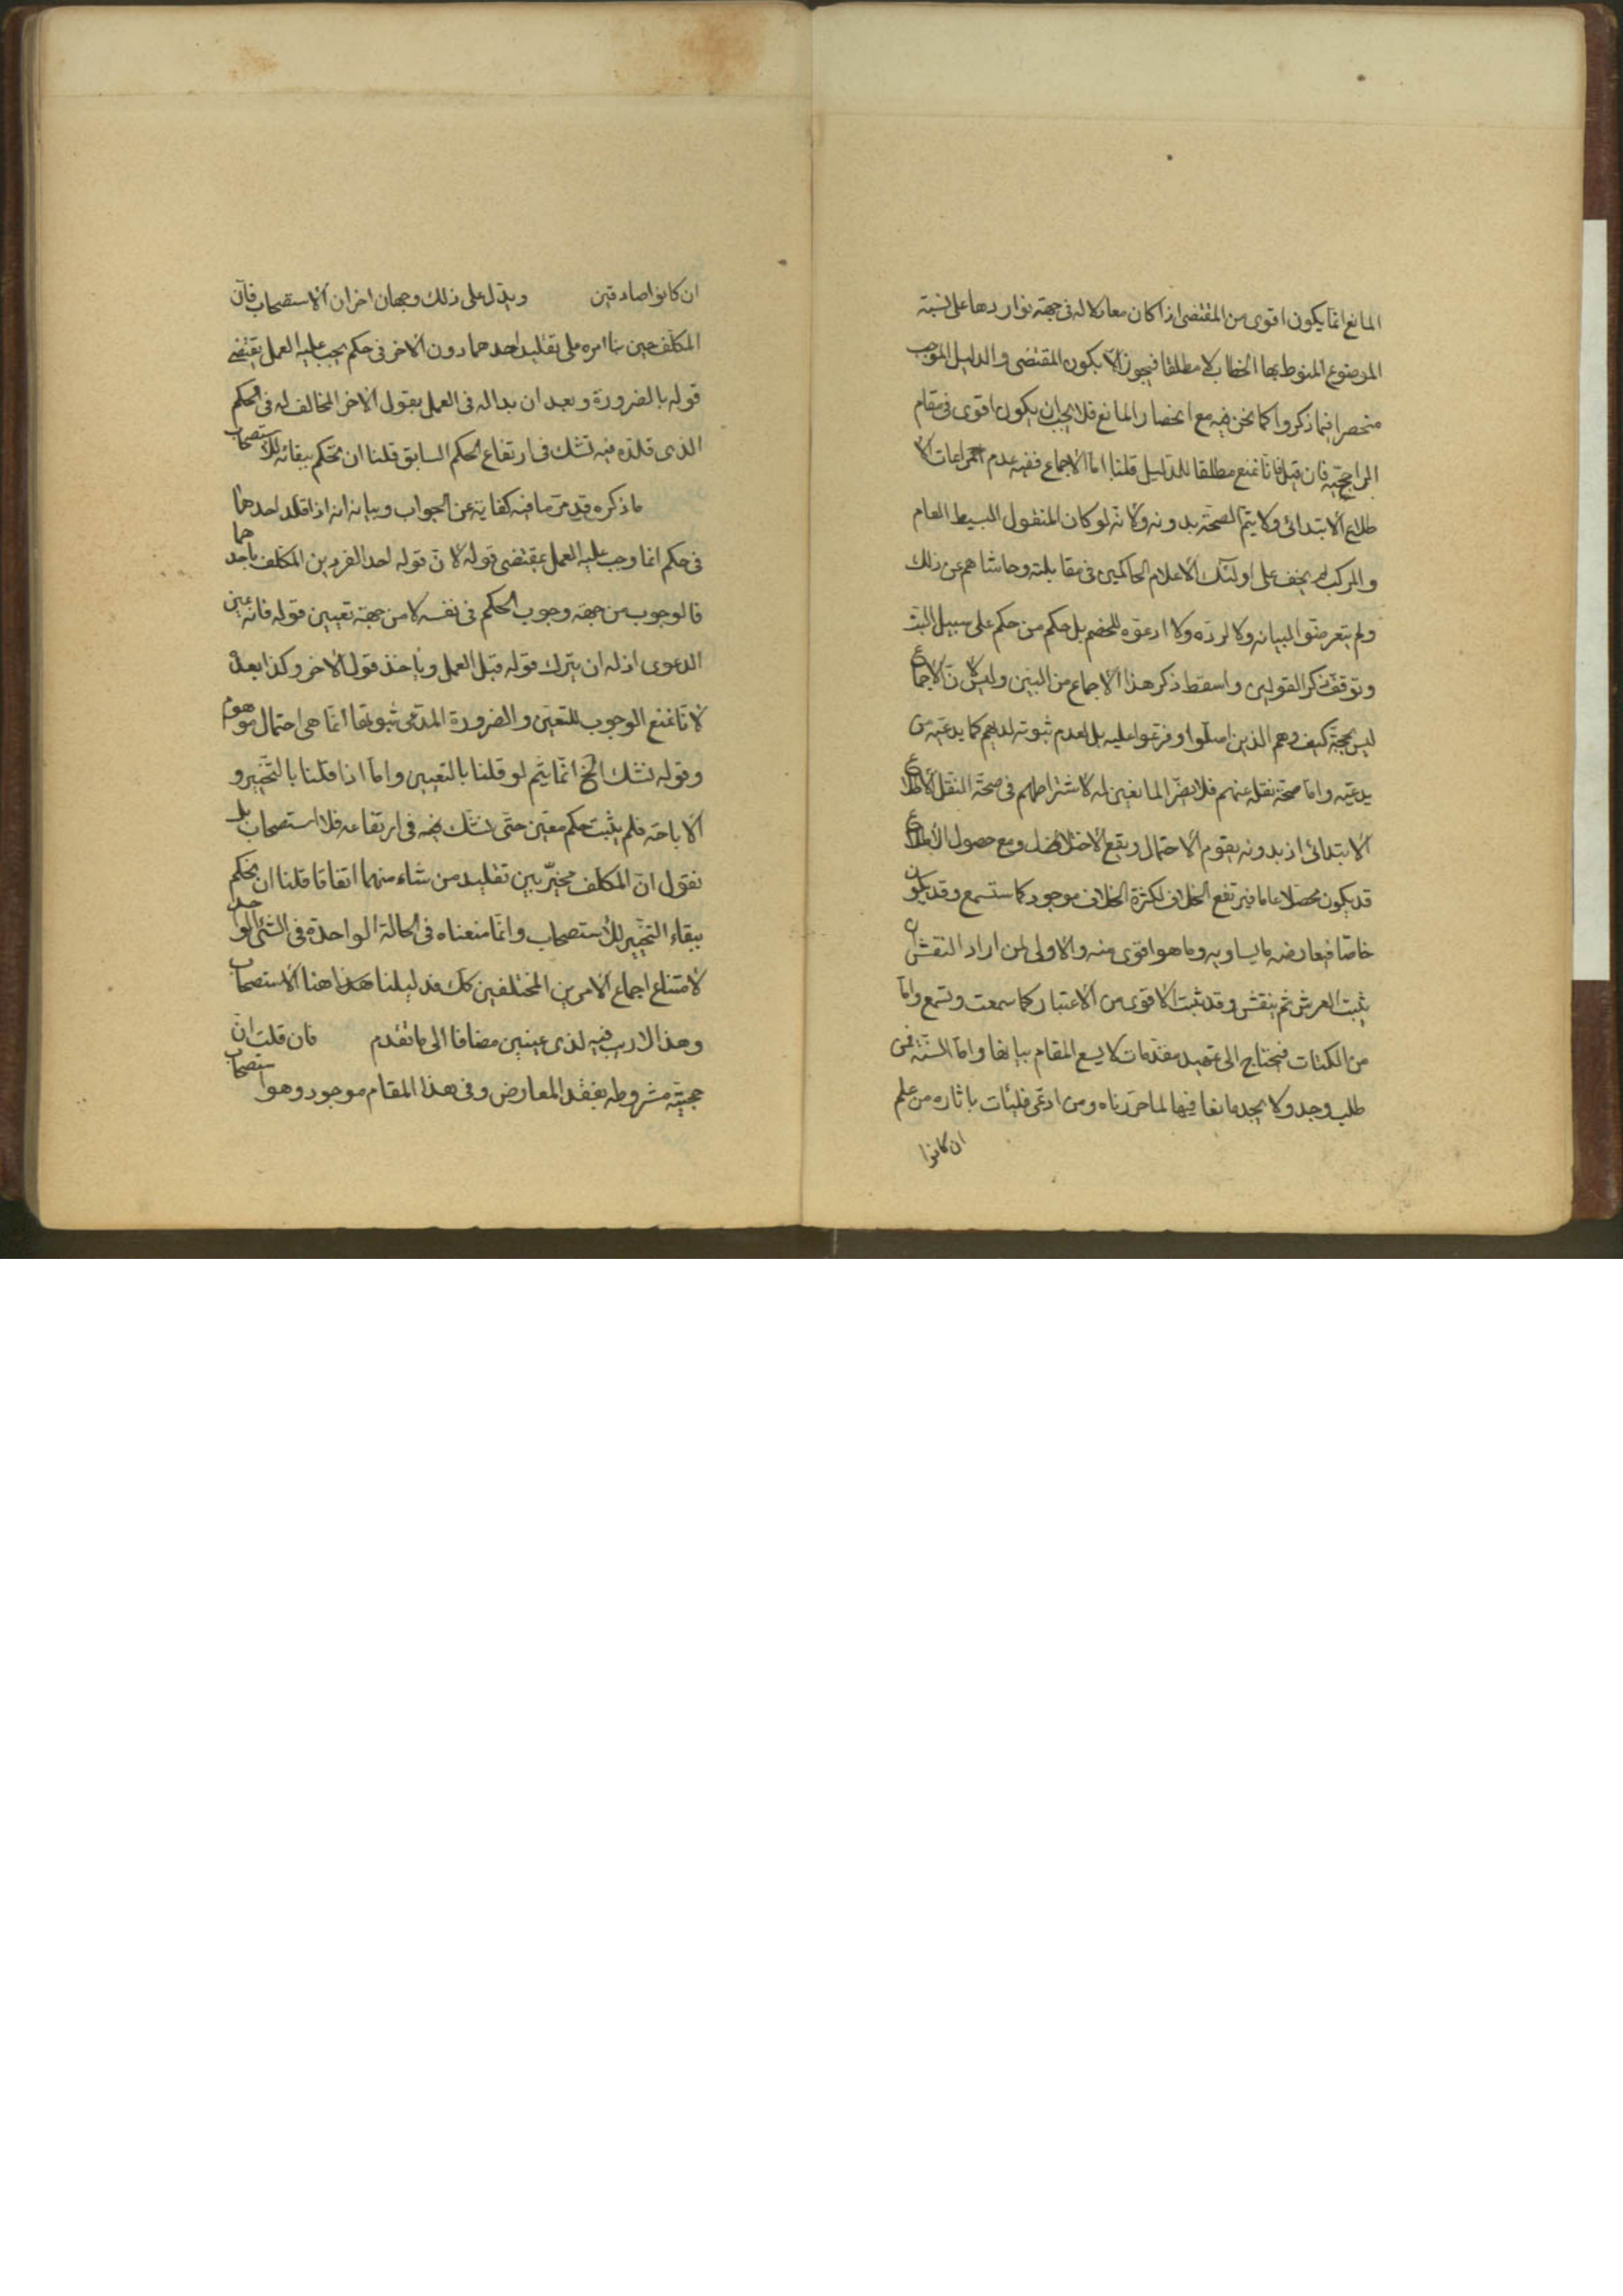 المانع انما يكون اقوى من المقتضى اذا كان معادلا له فى جهة تواردها على نسبة
الموضوع المنوط بها الخطاب لا مطلقا فيجوز الّا يكون المقتضى والدليل الموجب
منحصرا فيما ذكروا كما نحن فيه مع انحصار المانع فلا يجب ان يكون اقوى فى مقام
الراجحية فان قيل فانا نمنع مطلقا للدليل قلنا اما الاجماع ففيه عدم مراعات الا
طلاع الابتدائى ولا يتم الصحة بدونه ولانه لو كان المنقول البسيط العام
والمركب لم يخف على اولئك الاعلام الحاكمين فى مقابلته وحاشاهم عن ذلك
ولم يتعرضوا لبيانه ولا لرده ولا ادعوه للخصم بل حكم من حكم على سبيل البت
وتوقف ذكر القولين واسقط ذكر هذا الاجماع من البين وليس لانّ الاجماع
ليس بحجة كيف وهم الذين اصلوا وفرعوا عليه بل لعدم ثبوته لديهم كما يدعيه من
يدعيه واما صحة نقله عنهم فلا يضر المانعين له لاشتراطهم فى صحة النقل الاطلاع
الابتدائى اذ بدونه يقوم الاحتمال ويقع الاختلال ومع حصول الاطلاع
قد يكون محصلا عاما فيرتفع الخلاف لكثرة الخلاف موجود كما ستسمع وقد يكون
خاصا فيعارضه ما يساويه وما هو اقوى منه والاولى لمن اراد النقش ان
يثبت العرش ثم ينقش وقد ثبت الاقوى من الاعتبار كما سمعت وتسمع واما
من الكتاب فيحتاج الى تمهيد مقدمات لا يسع المقام بيانها واما السنة فمن
طلب وجد ولا يجد مانعا فيها لما حررناه ومن ادعى فليات باثاره من علم
ان كانوا
ان كانوا صادقين ويدل على ذلك وجهان اخران الاستصحاب فان
المكلف حين بنا امره على تقليد احدهما دون الاخر فى حكم يجب عليه العمل بمقتضى
قوله بالضرورة وبعد ان بدا له فى العمل بقول الاخر المخالف له فى الحكم
الذى قلده فيه نشك فى ارتفاع الحكم السابق قلنا ان نحكم ببقائه للاستصحاب
ما ذكره قد مر ما فيه كفاية عن الجواب وبيانه انه اذا قلد احدهما
فى حكم انما وجب عليه العمل بمقتضى قوله لانّ قوله احد الفردين المكلف باحدهما
فالوجوب من جهة وجوب الحكم فى نفسه لا من جهة تعيين قوله فانه عين
الدعوى اذ له ان يترك قوله قبل العمل وياخذ قول الاخر وكذا بعده
لانا نمنع الوجوب للتعين والضرورة المدعى ثبوتها انما هى احتمال موهوم
وقوله نشك الخ انما يتم لو قلنا بالتعيين واما اذا قلنا بالتخيير و
الاباحة فلم يثبت حكم معين حتى نشك فيه فى ارتفاعه فلا استصحاب بل
نقول ان المكلف مخير بين تقليد من شاء منهما اتفاقا قلنا ان نحكم
ببقاء التخيير للاستصحاب وانما منعناه فى الحالة الواحدة فى الشئ الواحد
لامتناع اجماع الامرين المختلفين كك فدليلنا هذا هنا الاستصحاب
وهذا لا ريب فيه لذى عينين مضافا الى ما تقدم فان قلت ان
حجيته مشروطه بفقد المعارض وفى هذا المقام موجود وهو استصحاب